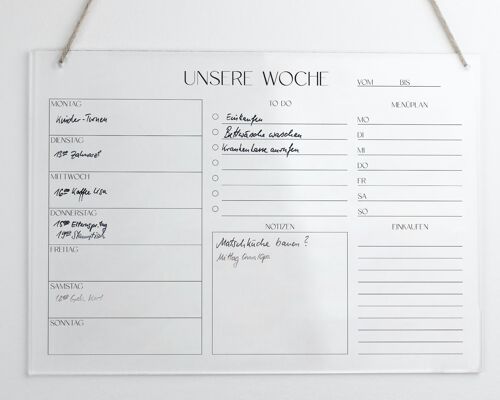 UNSERE WOCHE
VOM BIS
MONTAG
Kinder-Turnen
DIENSTAG
13⁰⁰ Zahnarzt
MITTWOCH
16⁰⁰ Kaffee Lisa
DONNERSTAG
15⁰⁰ Elternspr.tag
19⁰⁰ Stammtisch
FREITAG
SAMSTAG
SONNTAG
TO DO
Einkaufen
Bettwäsche waschen
Krankenkasse anrufen
NOTIZEN
Matschküche bauen?
Mittag Oma+Opa
MENÜPLAN
MO
DI
MI
DO
FR
SA
SO
EINKAUFEN